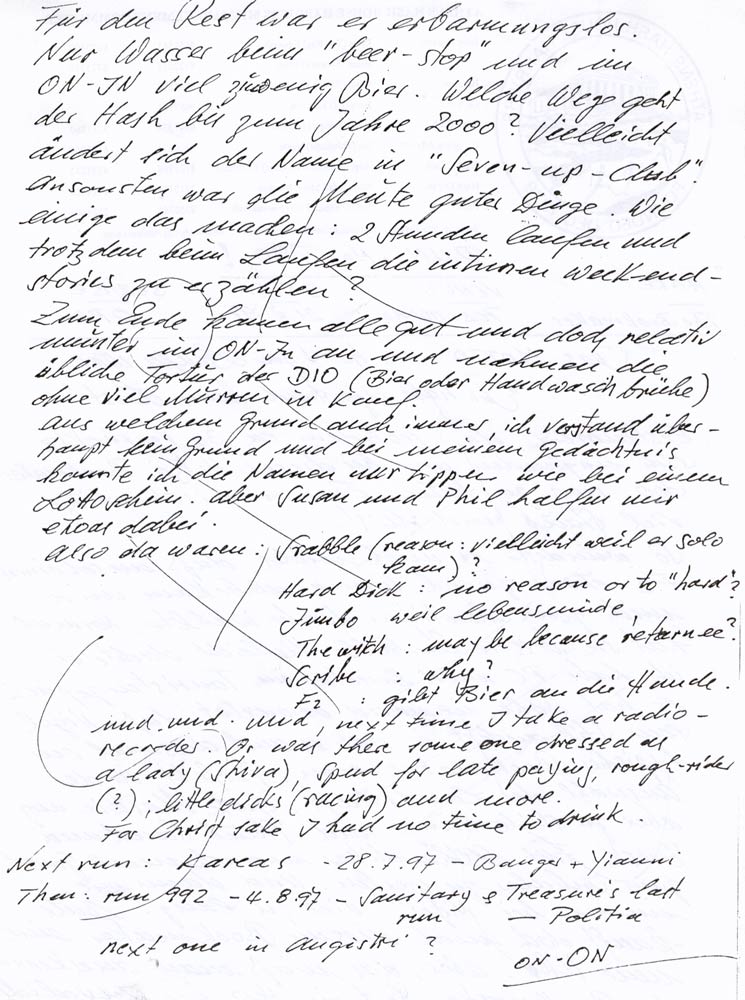 Für den Rest war er erbarmungslos.
Nur Wasser beim "beer-stop" und im
ON-IN viel zuwenig Bier. Welche Wege geht
der Hash bis zum Jahre 2000? Vielleicht
ändert sich der Name in "Seven-up-Club".
Ansonsten war die Meute guter Dinge. Wie
einige das machen: 2 Stunden laufen und
trotzdem beim Laufen die intimen weekend-
stories zu erzählen?
Zum Ende kamen alle gut und doch relativ
munter im ON-In an und nahmen die
übliche Tortur des DIO (Bier oder Handwaschbrühe)
ohne viel Murren in Kauf.
aus welchem Grund auch immer, ich verstand über-
haupt kein Grund und bei meinem Gedächtnis
konnte ich die Namen nur tippen wie bei einem
Lottoschein. aber Susan und Phil halfen mir
etwas dabei.
Also da waren: Srabble (reason: vielleicht weil er solo
kam)?
Hard Dick: no reason or to "hard"?
Jumbo weil lebensmüde,
The witch: may be because returnee?
Scribe: why?
F2: gibt Bier an die Hunde.
und. und. und, next time I take a radio-
recorder. Or was there someone dressed as
a lady (Shiva), Spud for late paying, rough-rider
(?); little dicks (racing) and more.
For Christ sake I had no time to drink.
Next run: Kareas - 28.7.97 - Banger + Yianni
Then: run 992 - 4.8.97 - Sanitary & Treasure's last
run — Politia
next one in Angistri?
ON-ON